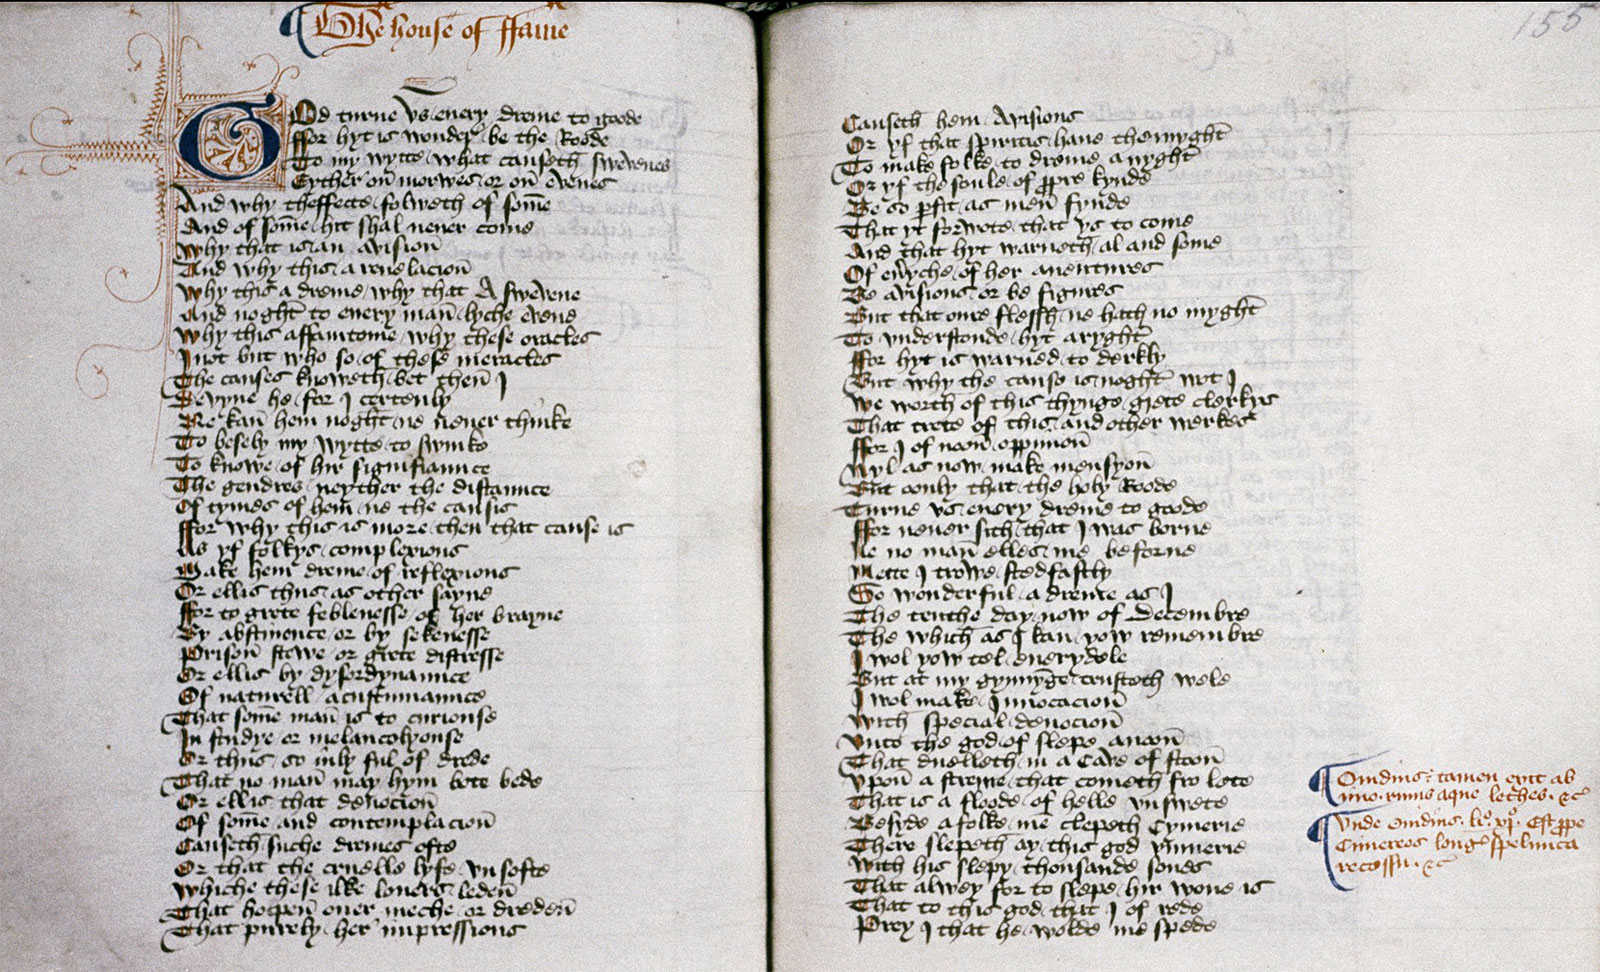 The house of ffame
God turne vs euery dreme to goode
ffor hyt is wonder be the Roode
To my wytte what causeth swevenes
Eyther on morwes or on evenes
And why theffecte folweth of somme
And of somme hit shal neuer come
Why that is an avision
And why this a reuelacion
Why this a dreme why that A swevene
And noght to euery man lyche evene
Why this affauntome why these oracles
I not but who so of these meracles
The causes knoweth bet then I
Devyne he for I certenly
Ne kan hem noght ne neuer thinke
To besely my wytte to swinke
To knowe of hir signifiaunce
The gendres neyther the distaunce
Of tymes of hem ne the causis
ffor why this is more then that cause is
As yf folkys complexions
Make hem dreme of reflexions
Or ellis thus as other sayne
ffor to grete feblenesse of her brayne
By abstinence or by sekenesse
Prison stewe or grete distresse
Or ellis by dysordynaunce
Of naturell acustumaunce
That somme man is to curiouse
In studye or melancolyouse
Or thus so inly ful of drede
That no man may hym bote bede
Or ellis that deuocion
Of somme and contemplacion
Causeth suche dremes ofte
Or that the cruelle lyfe vnsofte
Whiche these ilke louers leden
That hoepen ouer meche or dreden
That purely her impressions
155
Causeth hem Avisions
Or yf that spiritis haue the myght
To make folke to dreme a nyght
Or yf the soule of ppre kynde
Be so pfit as men fynde
That yt forwote that ys to come
And that hyt warneth al and some
Of eueryche of her auentures
Be avisions or be figures
But that oure flessh ne hath no myght
To vnderstonde hyt aryght
ffor hyt is warned to derkly
But why the cause is noght wot I
We worth of this thynge grete clerkys
That trete of this and other werkes
ffor I of noon oppinion
Nyl as now make mensyon
But oonly that the holy Roode
Turne vs euery dreme to goode
ffor neuer sith that I was borne
Ne no man elles me beforne
Mette I trowe stedfastly
So wonderful a dreme as I
The tenthe day now of Decembre
The which as I kan yow remembre
I wol yow tel euerydele
But at my gynnynge trusteth wele
I wol make Inuocacion
With special deuocion
Vnto the god of slepe anoon
That duelleth in a Cave of stoon
Vpon a streme that cometh fro lete
That is a floode of helle vnswete
Besyde a folke men clepeth Cymerie
There slepeth ay this god vnmerie
With his slepy thousande sones
That alwey for to slepe hir wone is
That to this god that I of rede
Prey I that he wolde me spede
Ouidius tamen exit ab
imo riuus aque lethes &c
Vnde ouidius li.o xi.o Est ppe
Cimereos longo spelunca
recessu &c